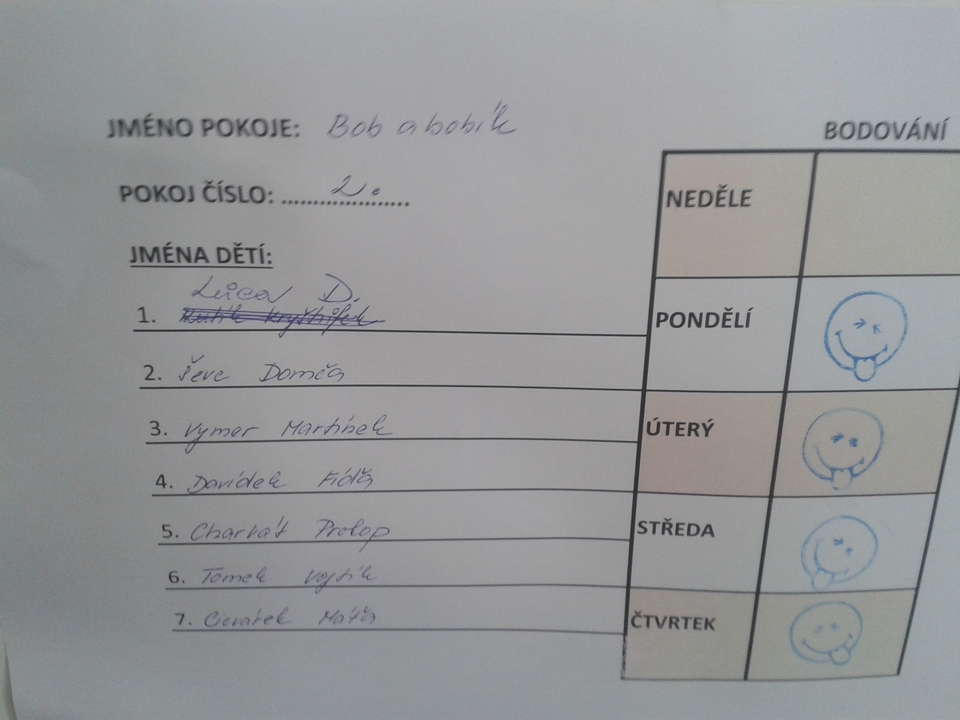 JMÉNO POKOJE: Bob a bobík
BODOVÁNÍ
POKOJ ČÍSLO: .......2.......
NEDĚLE
JMÉNA DĚTÍ:
D.
1.
PONDĚLÍ
2. Ševc Domča
3. Vymer Martínek
ÚTERÝ
4. Davídek
5. Charvát Prokop
STŘEDA
6. Tomek Vojtík
7. Máťa
ČTVRTEK